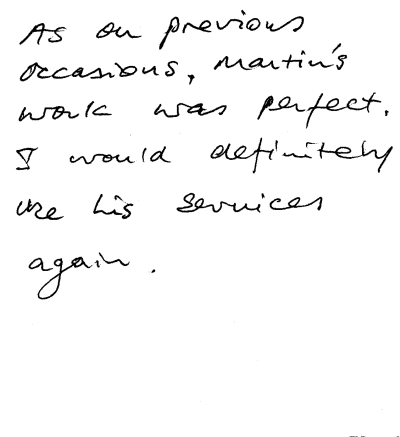 As on previous
occasions, Martin's
work was perfect.
I would definitely
use his services
again.